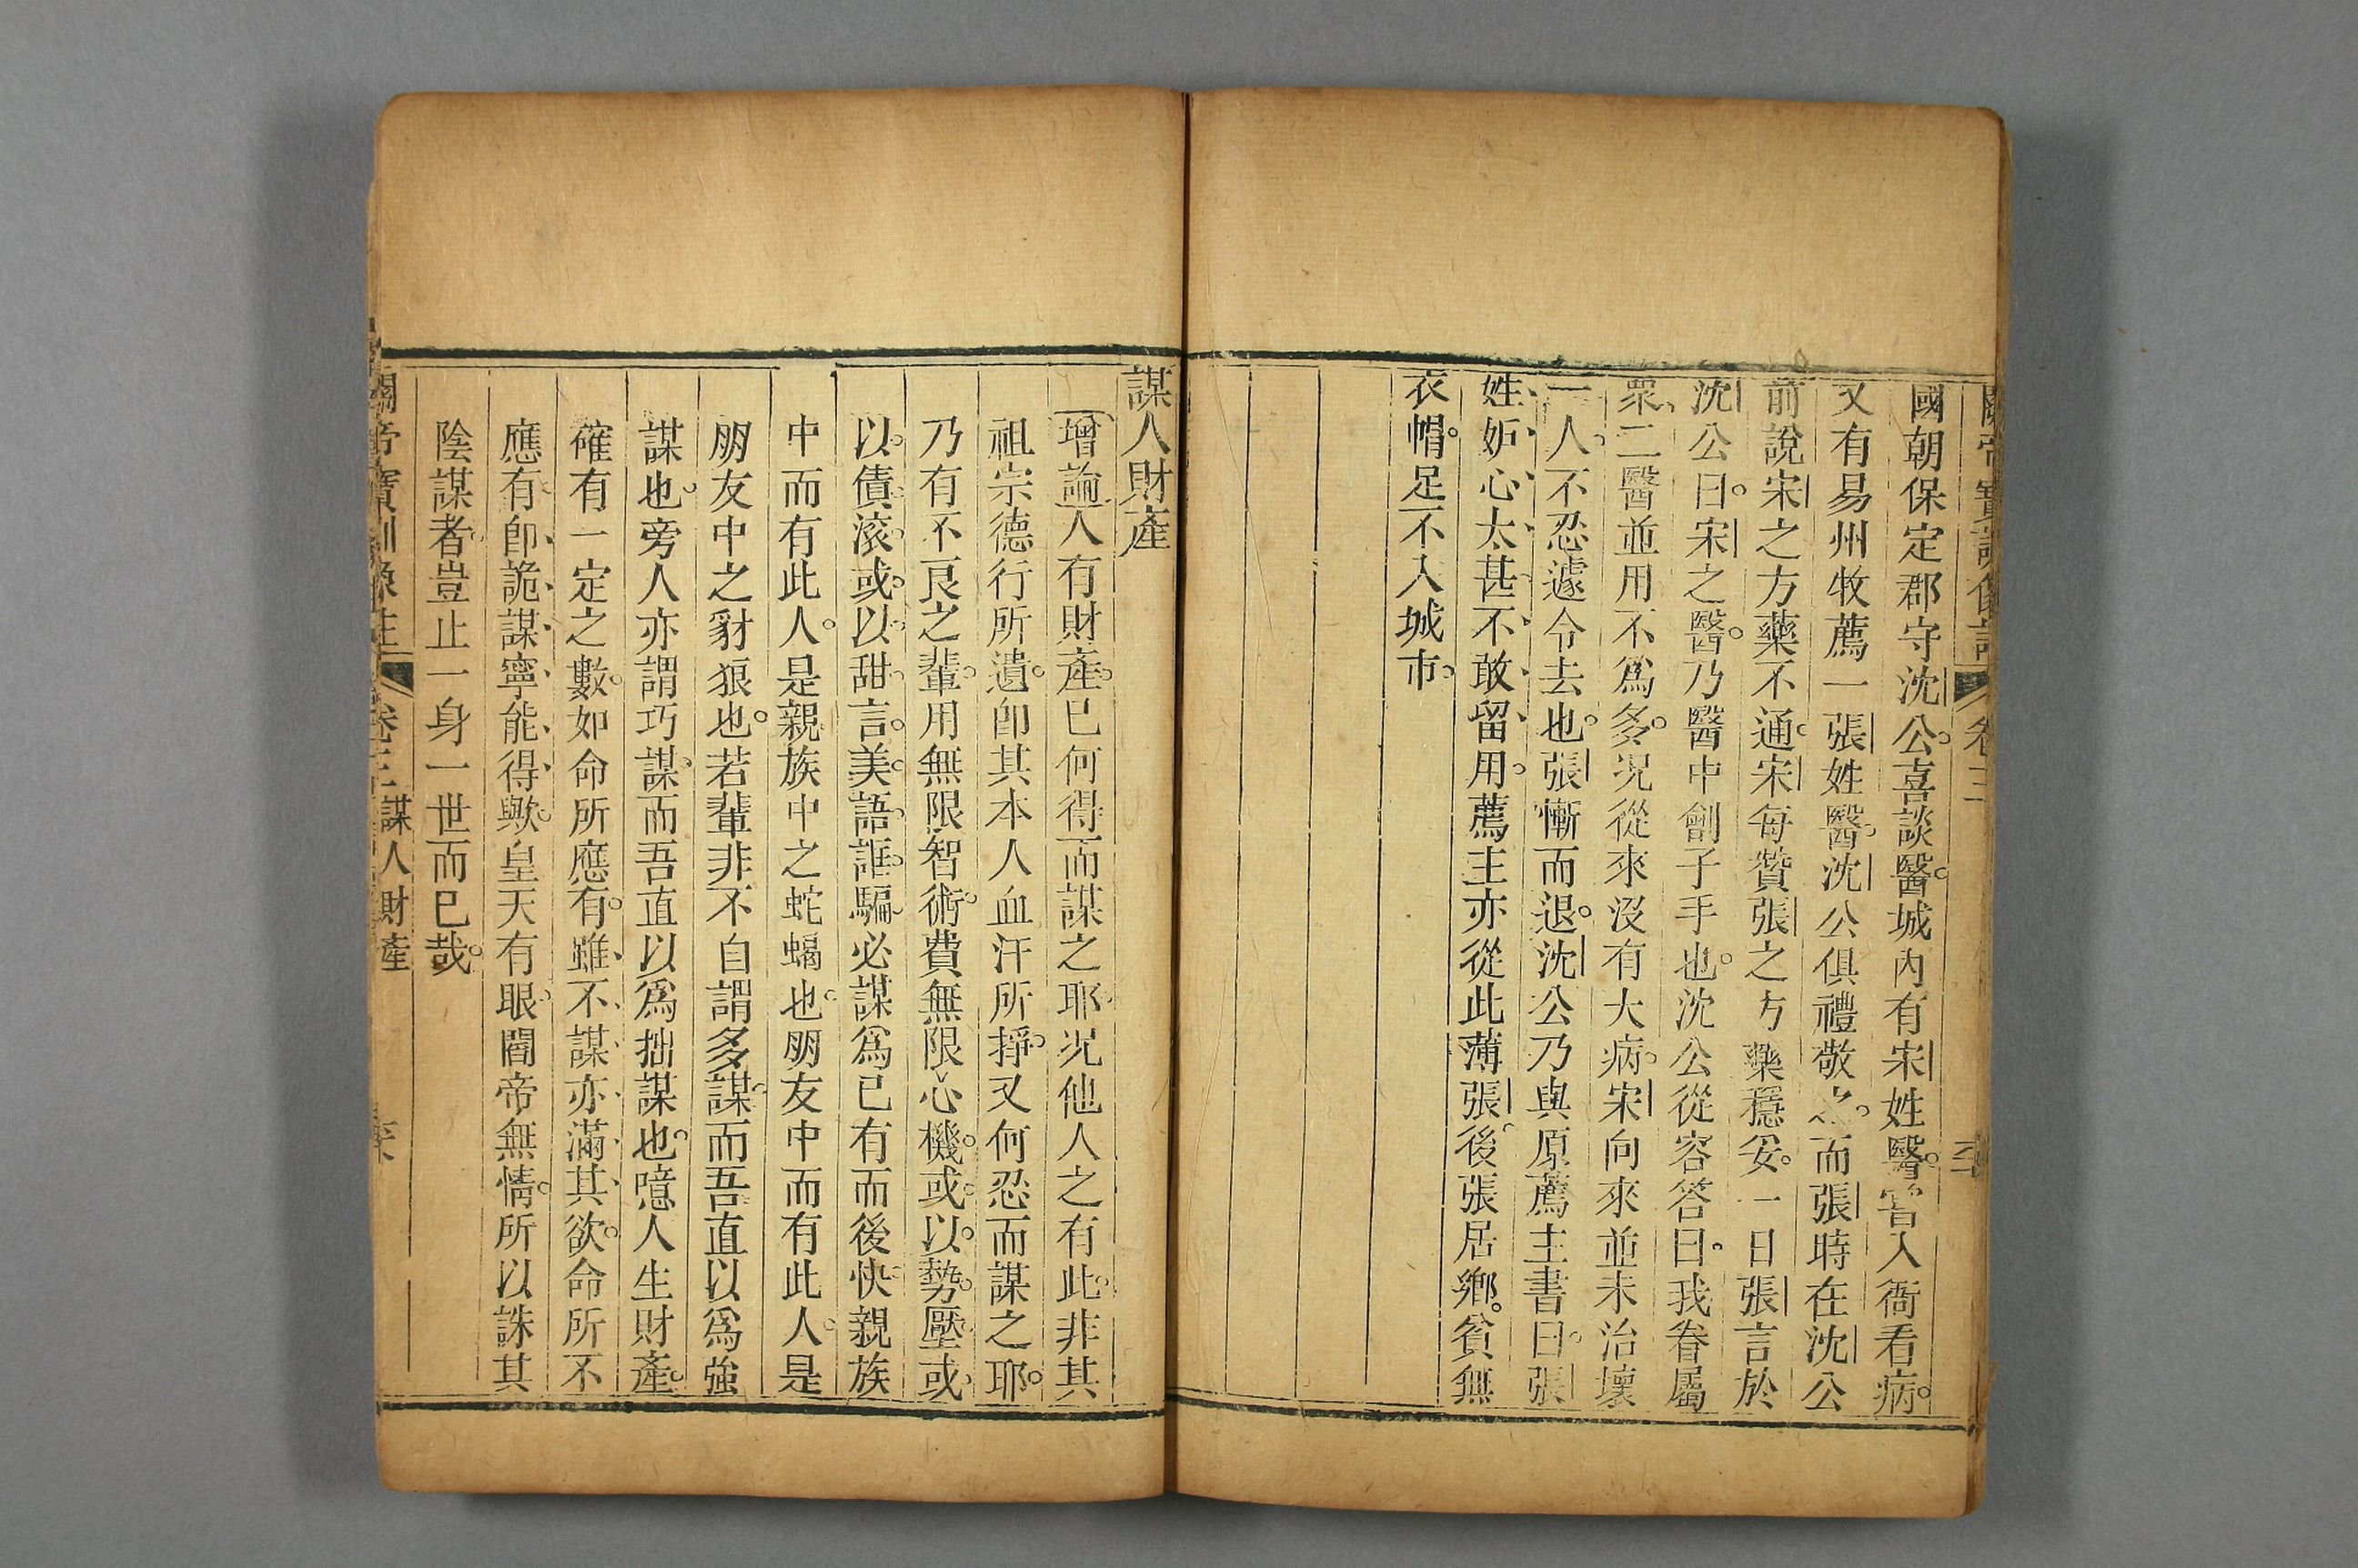 國朝保定郡守沈公喜談醫城內有宋姓醫嘗入衙看病
又有易州牧薦一張姓醫沈公俱禮敬之而張時在沈公
前說宋之方藥不通宋每贊張之方藥穩妥一日張言於
沈公曰宋之醫乃醫中劊子手也沈公從容答曰我眷屬
衆二醫並用不爲多况從來沒有大病宋向來並未治壞
一人不忍遽令去也張慚而退沈公乃與原薦主書曰張
姓妒心太甚不敢留用薦主亦從此薄張後張居鄉貧無
衣帽足不入城市
謀人財產
增論人有財產已何得而謀之耶况他人之有此非其
祖宗德行所遺卽其本人血汗所掙又何忍而謀之耶
乃有不良之輩用無限智術費無限心機或以勢壓或
以債滚或以甜言美語誆騙必謀爲已有而後快親族
中而有此人是親族中之蛇蝎也朋友中而有此人是
朋友中之豺狼也若輩非不自謂多謀而吾直以爲強
謀也旁人亦謂巧謀而吾直以爲拙謀也噫人生財產
確有一定之數如命所應有雖不謀亦滿其欲命所不
應有卽詭謀寧能得歟皇天有眼閻帝無情所以誅其
陰謀者豈止一身一世而已哉
關帝寶訓像註 卷三 謀人財產